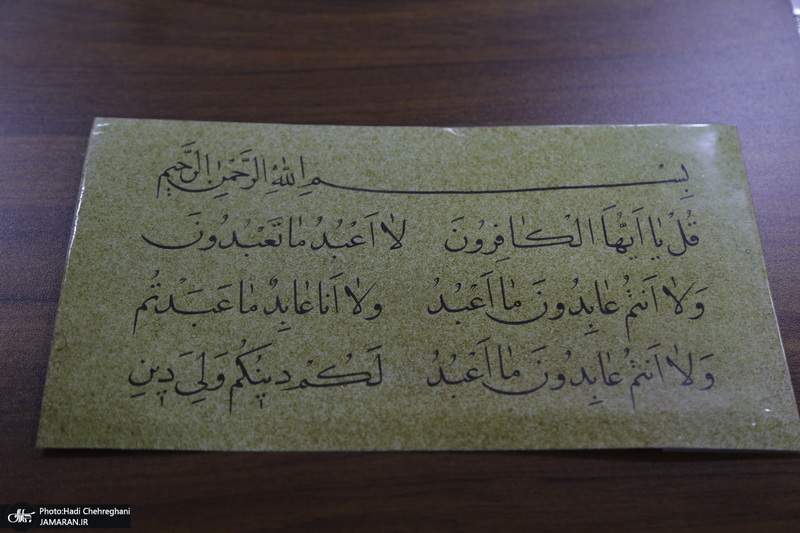 بِسْمِ اللهِ الرَّحْمٰنِ الرَّحيمِ
قُلْ يٰا اَيُّهَا الْكٰافِرُونَ لٰا اَعْبُدُ مٰا تَعْبُدُونَ
وَلٰا اَنْتُمْ عٰابِدُونَ مٰا اَعْبُدُ وَلٰا اَنَا عٰابِدٌ مٰا عَبَدْتُم
وَلٰا اَنْتُمْ عٰابِدُونَ مٰا اَعْبُدُ لَكُمْ دينُكُم وَلِيَ دينِ
Photo:Hadi Chehreghani
JAMARAN.IR